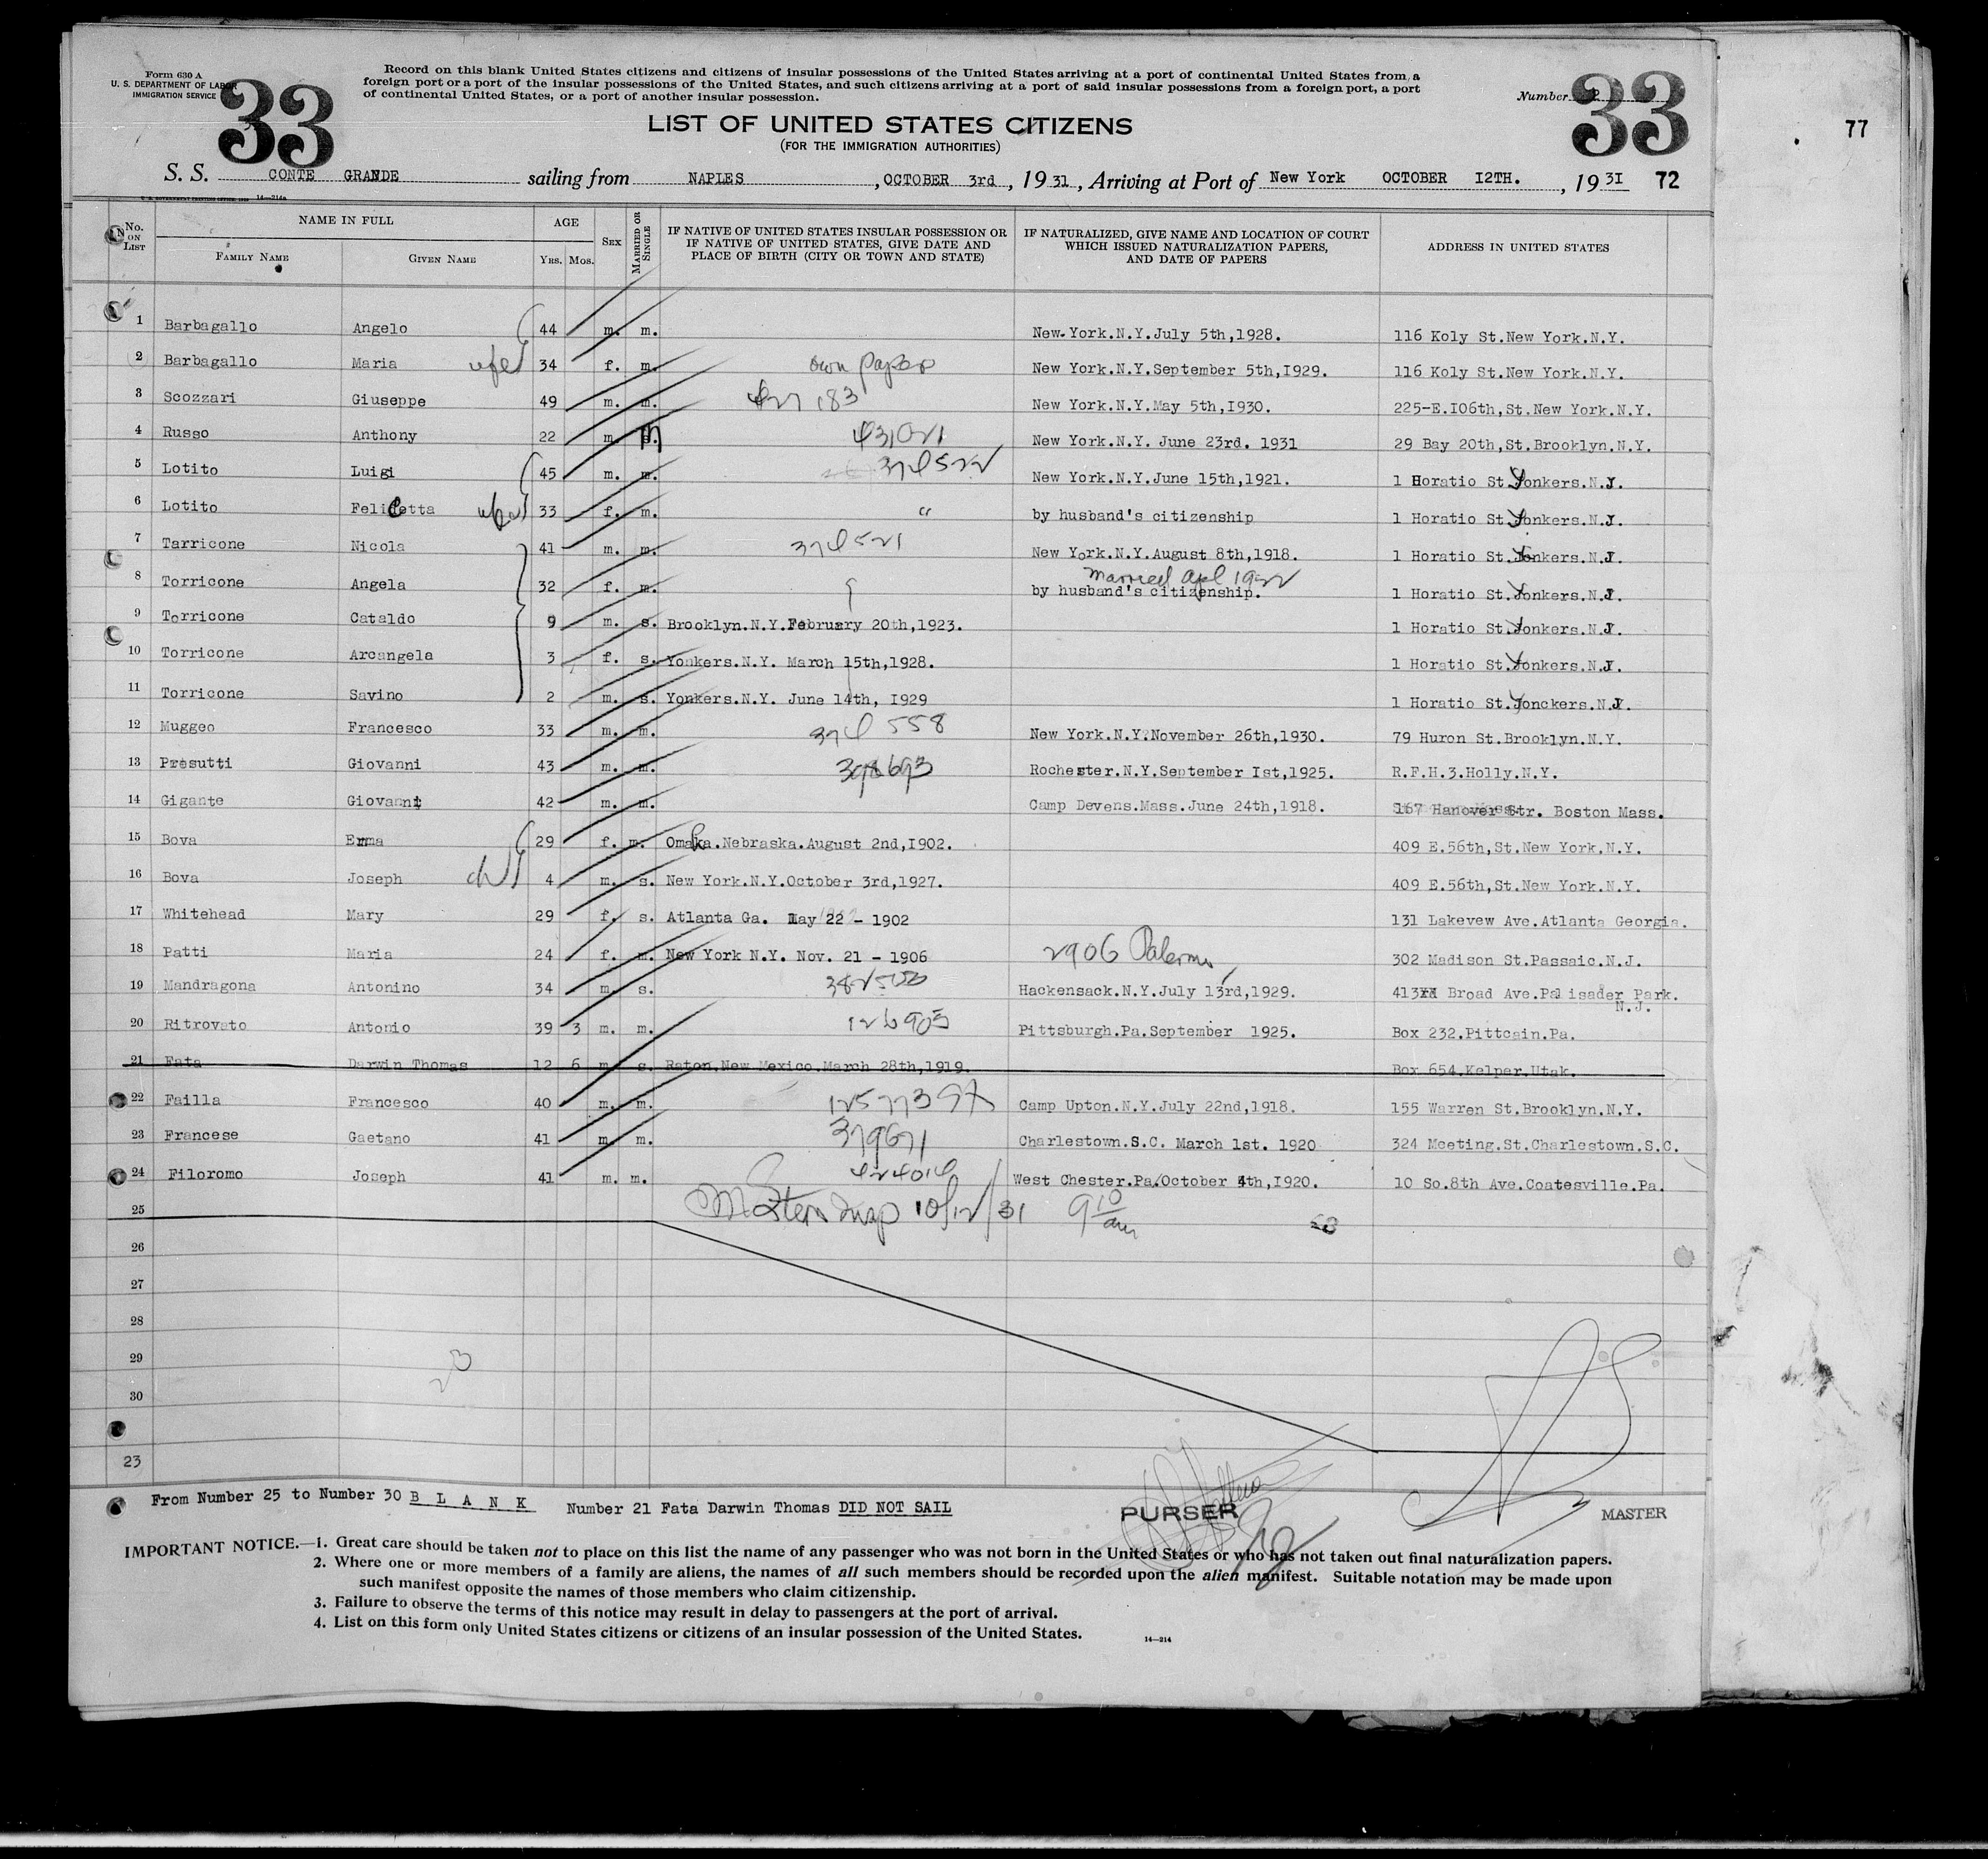 Form 630 A
U. S. DEPARTMENT OF LABOR
IMMIGRATION SERVICE
33
Record on this blank United States citizens and citizens of insular possessions of the United States arriving at a port of continental United States from a
foreign port or a port of the insular possessions of the United States, and such citizens arriving at a port of said insular possessions from a foreign port, a port
of continental United States, or a port of another insular possession.
Number
33
77
LIST OF UNITED STATES CITIZENS
(FOR THE IMMIGRATION AUTHORITIES)
S. S. CONTE GRANDE sailing from NAPLES , OCTOBER 3rd , 1931 , Arriving at Port of New York OCTOBER I2TH. , 1931 72
No. ON LIST
NAME IN FULL
FAMILY NAME
GIVEN NAME
AGE
YRS. MOS.
SEX
MARRIED OR SINGLE
IF NATIVE OF UNITED STATES INSULAR POSSESSION OR
IF NATIVE OF UNITED STATES, GIVE DATE AND
PLACE OF BIRTH (CITY OR TOWN AND STATE)
IF NATURALIZED, GIVE NAME AND LOCATION OF COURT
WHICH ISSUED NATURALIZATION PAPERS,
AND DATE OF PAPERS
ADDRESS IN UNITED STATES
1 Barbagallo Angelo 44 m. m. New-York.N.Y.July 5th,1928. 116 Koly St.New York.N.Y.
2 Barbagallo Maria wife 34 f. m. own paper New York.N.Y.September 5th,I929. 116 Koly St.New York.N.Y.
3 Scozzari Giuseppe 49 m. m. 427 183 New York.N.Y.May 5th,I930. 225-E.I06th,St.New York.N.Y.
4 Russo Anthony 22 m. m 431021 New York.N.Y. June 23rd. 1931 29 Bay 20th,St.Brooklyn.N.Y.
5 Lotito Luigi 45 m. m. 374522 New York.N.Y.June 15th,1921. 1 Horatio St.Yonkers.N.Y.
6 Lotito Felicetta wife 33 f. m. " by husband's citizenship 1 Horatio St.Yonkers.N.Y.
7 Tarricone Nicola 41 m. m. 374521 New York.N.Y.August 8th,1918. 1 Horatio St.Yonkers.N.Y.
married Apl 1922
8 Torricone Angela 32 f. m. by husband's citizenship. 1 Horatio St.Yonkers.N.Y.
9 Torricone Cataldo 9 m. s. Brooklyn.N.Y.February 20th,1923. 1 Horatio St.Yonkers.N.Y.
10 Torricone Arcangela 3 f. s. Yonkers.N.Y. March 15th,1928. 1 Horatio St.Yonkers.N.Y.
11 Torricone Savino 2 m. s. Yonkers.N.Y. June 14th, I929 1 Horatio St.Yonckers.N.Y.
12 Muggeo Francesco 33 m. m. 374 558 New York.N.Y.November 26th,1930. 79 Huron St.Brooklyn.N.Y.
13 Presutti Giovanni 43 m. m. 398693 Rochester.N.Y.September Ist,1925. R.F.H.3.Holly.N.Y.
14 Gigante Giovanni 42 m. m. Camp Devens.Mass.June 24th,1918. 167 Hanover Str. Boston Mass.
15 Bova Emma 29 f. m. Omaha.Nebraska.August 2nd,I902. 409 E.56th,St.New York.N.Y.
16 Bova Joseph chd 4 m. s. New York.N.Y.October 3rd,1927. 409 E.56th,St.New York.N.Y.
17 Whitehead Mary 29 f. s. Atlanta Ga. May 22 - 1902 131 Lakevew Ave.Atlanta Georgia.
18 Patti Maria 24 f. m. New York N.Y. Nov. 21 - 1906 2906 Palermo 302 Madison St.Passaic.N.J.
19 Mandragona Antonino 34 m. s. 382500 Hackensack.N.Y.July 13rd,1929. 413 Broad Ave.Palisader Park.
N.J.
20 Ritrovato Antonio 39 3 m. m. 126905 Pittsburgh.Pa.September 1925. Box 232.Pittcain.Pa.
21 Fata Darwin Thomas 12 6 m. s. Raton.New Mexico.March 28th,1919. Box 654.Kelper.Utak.
22 Failla Francesco 40 m. m. 125773 Camp Upton.N.Y.July 22nd,1918. 155 Warren St.Brooklyn.N.Y.
23 Francese Gaetano 41 m. m. 379671 Charlestown.S.C. March 1st. 1920 324 Meeting.St.Charlestown.S.C.
24 Filoromo Joseph 41 m. m. 424014 West Chester.Pa.October 4th,I920. 10 So.8th Ave.Coatesville.Pa.
25 Insp 10/12/31 9 10 am
26
27
28
29
30
23
23
From Number 25 to Number 30 B L A N K Number 21 Fata Darwin Thomas DID NOT SAIL
PURSER
MASTER
IMPORTANT NOTICE.—1. Great care should be taken not to place on this list the name of any passenger who was not born in the United States or who has not taken out final naturalization papers.
2. Where one or more members of a family are aliens, the names of all such members should be recorded upon the alien manifest. Suitable notation may be made upon
such manifest opposite the names of those members who claim citizenship.
3. Failure to observe the terms of this notice may result in delay to passengers at the port of arrival.
4. List on this form only United States citizens or citizens of an insular possession of the United States.
14—214